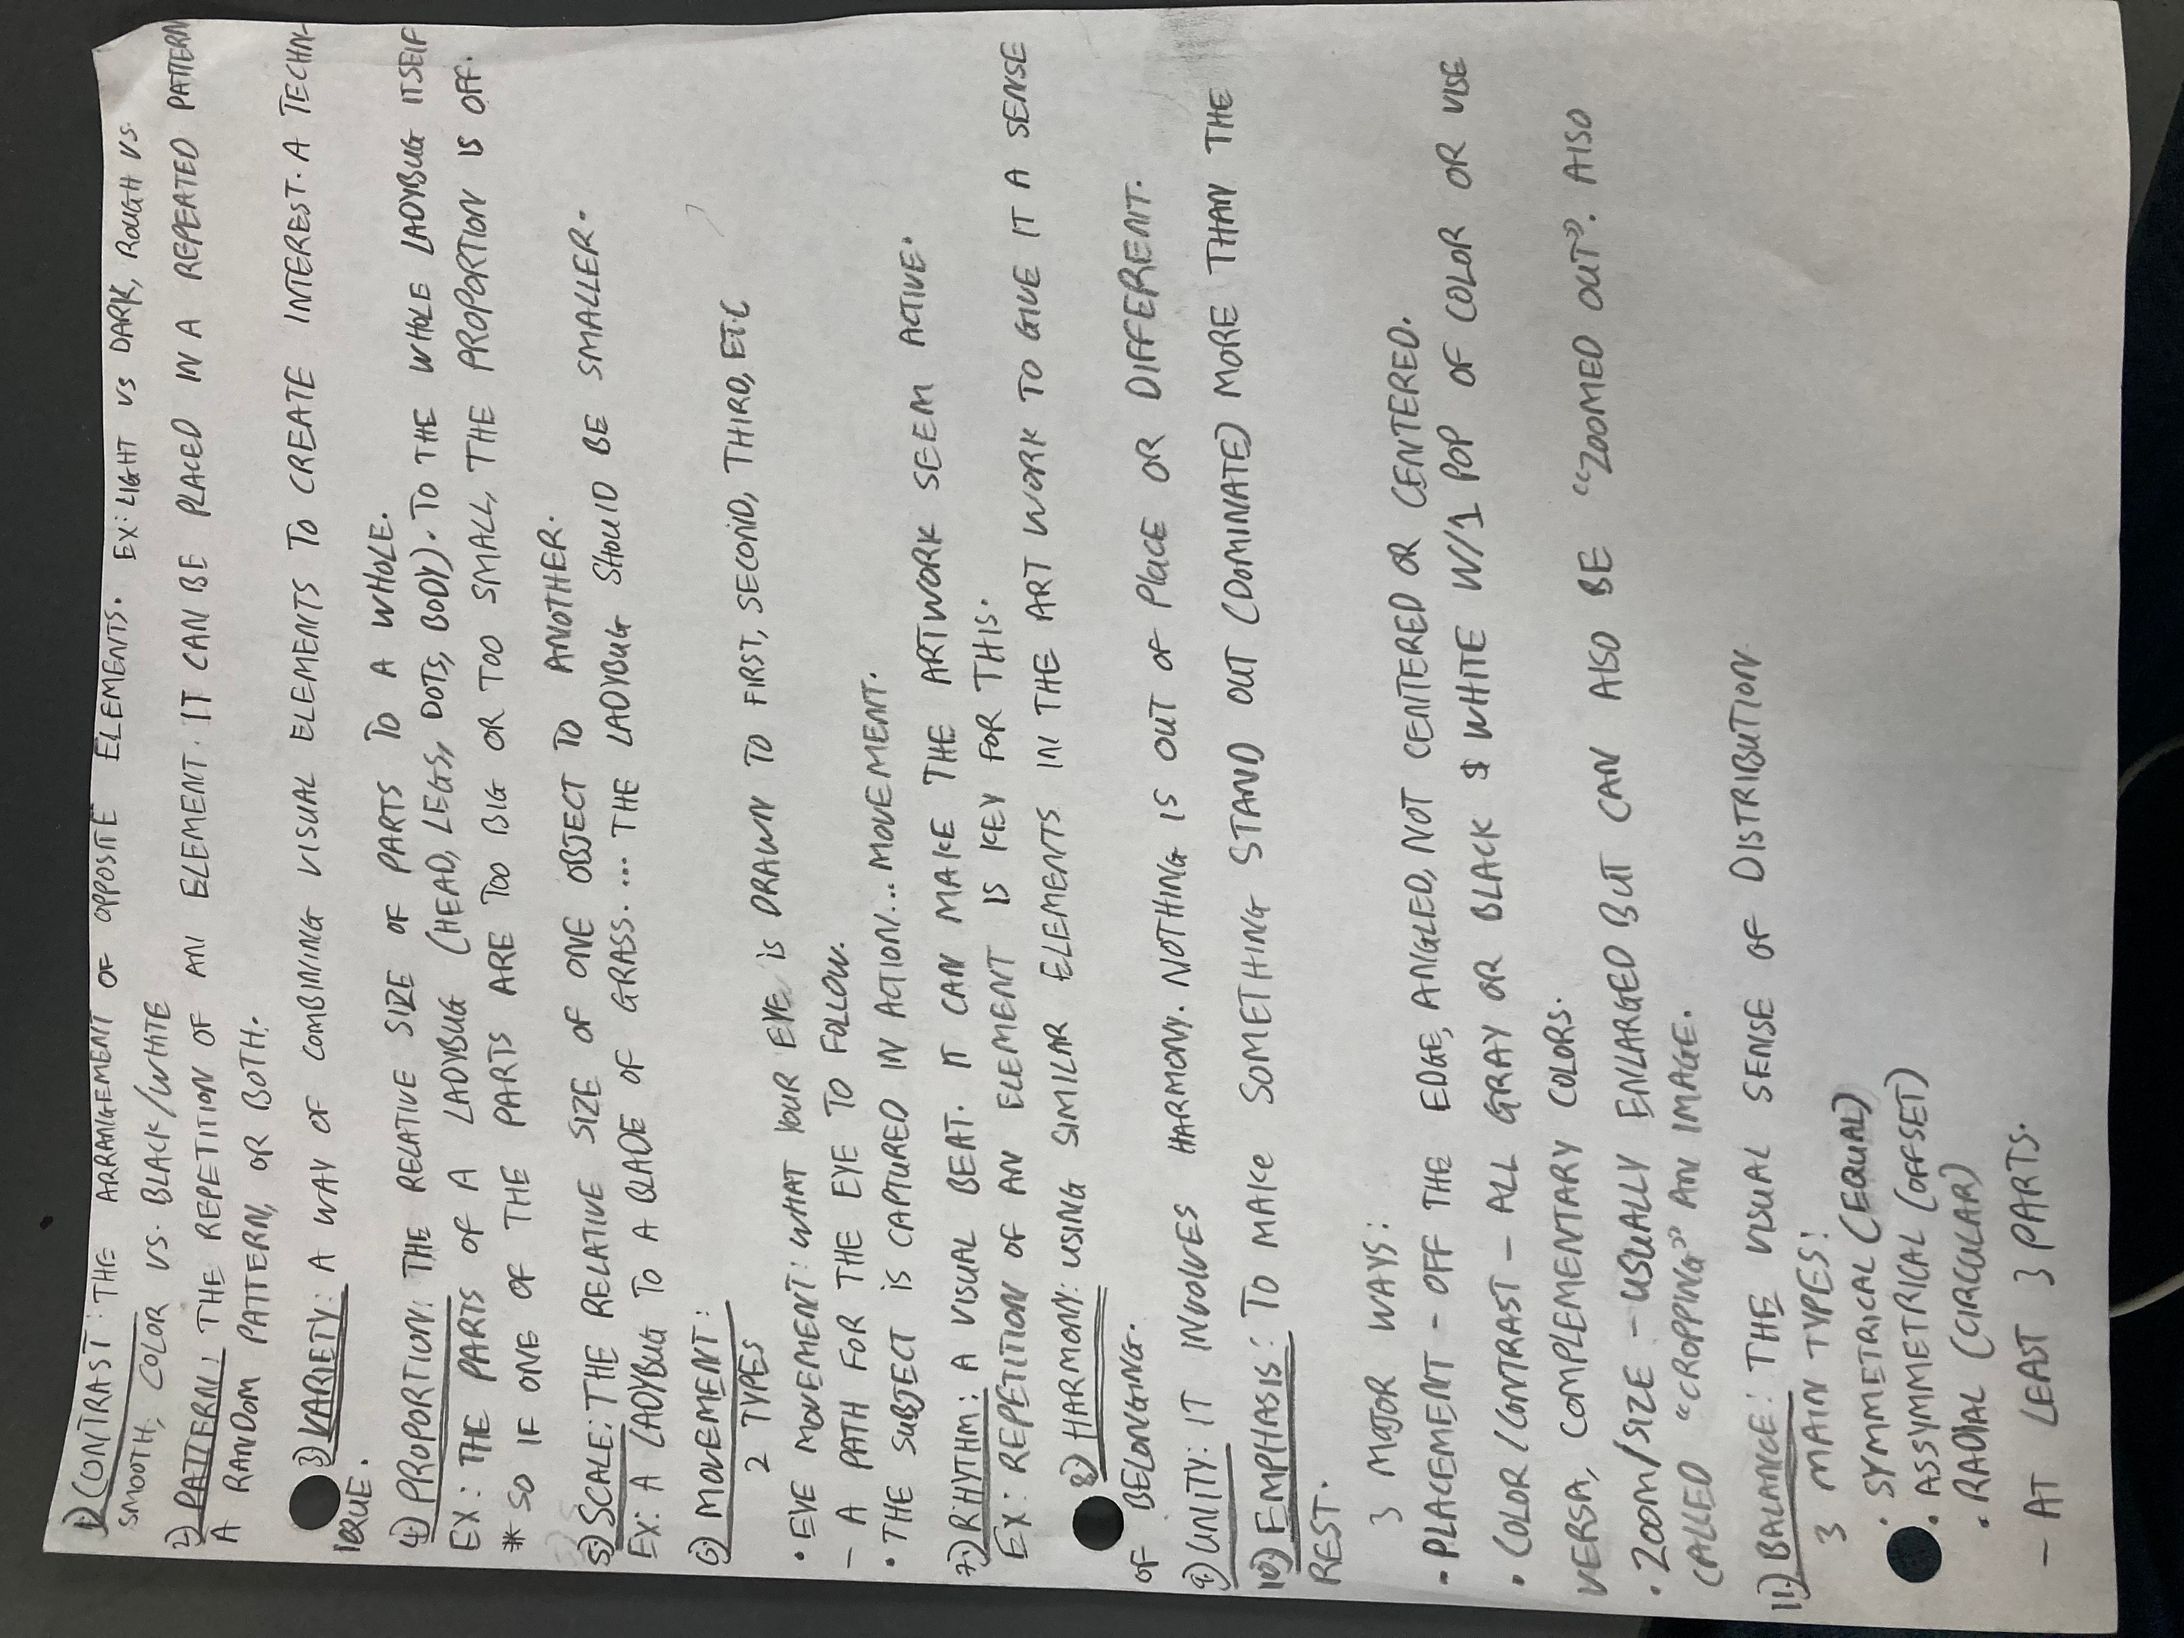 1) CONTRAST: THE ARRANGEMENT OF OPPOSITE ELEMENTS. EX: LIGHT VS DARK, ROUGH VS.
SMOOTH, COLOR VS. BLACK/WHITE
2) PATTERN: THE REPETITION OF AN ELEMENT. IT CAN BE PLACED IN A REPEATED PATTERN
A RANDOM PATTERN, OR BOTH.
3) VARIETY: A WAY OF COMBINING VISUAL ELEMENTS TO CREATE INTEREST. A TECHN-
IQUE.
4) PROPORTION: THE RELATIVE SIZE OF PARTS TO A WHOLE.
EX: THE PARTS OF A LADYBUG (HEAD, LEGS, DOTS, BODY). TO THE WHOLE LADYBUG ITSELF
* SO IF ONE OF THE PARTS ARE TOO BIG OR TOO SMALL, THE PROPORTION IS OFF.
5) SCALE: THE RELATIVE SIZE OF ONE OBJECT TO ANOTHER.
EX: A LADYBUG TO A BLADE OF GRASS.... THE LADYBUG SHOULD BE SMALLER.
6) MOVEMENT:
2 TYPES
• EYE MOVEMENT: WHAT YOUR EYE IS DRAWN TO FIRST, SECOND, THIRD, ETC
- A PATH FOR THE EYE TO FOLLOW.
• THE SUBJECT IS CAPTURED IN ACTION... MOVEMENT.
7) RHYTHM: A VISUAL BEAT. IT CAN MAKE THE ARTWORK SEEM ACTIVE.
EX: REPETITION OF AN ELEMENT IS KEY FOR THIS.
8) HARMONY: USING SIMILAR ELEMENTS IN THE ART WORK TO GIVE IT A SENSE
OF BELONGING.
9) UNITY: IT INVOLVES HARMONY. NOTHING IS OUT OF PLACE OR DIFFERENT.
10) EMPHASIS: TO MAKE SOMETHING STAND OUT (DOMINATE) MORE THAN THE
REST.
3 MAJOR WAYS:
• PLACEMENT - OFF THE EDGE, ANGLED, NOT CENTERED OR CENTERED.
• COLOR/CONTRAST - ALL GRAY OR BLACK & WHITE W/1 POP OF COLOR OR VISE
VERSA, COMPLEMENTARY COLORS.
• ZOOM/SIZE - USUALLY ENLARGED BUT CAN ALSO BE "ZOOMED OUT". ALSO
CALLED "CROPPING" AN IMAGE.
11) BALANCE: THE VISUAL SENSE OF DISTRIBUTION
3 MAIN TYPES:
• SYMMETRICAL (EQUAL)
• ASSYMMETRICAL (OFFSET)
• RADIAL (CIRCULAR)
- AT LEAST 3 PARTS.